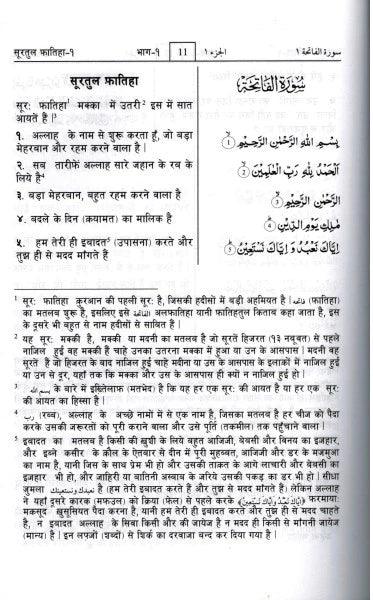 सूरतुल फातिहा-१
भाग-१
11
الجزء ١
سورة الفاتحة ١
सूरतुल फातिहा
सूर: फातिहा¹ मक्का में उतरी² इस में सात
आयतें हैं।³
१. अल्लाह के नाम से शुरू करता हूँ, जो बड़ा
मेहरबान और रहम करने वाला है।
२. सब तारीफें अल्लाह सारे जहान के रब के
लिये है⁴
३. बड़ा मेहरबान, बहुत रहम करने वाला है
४. बदले के दिन (क़यामत) का मालिक है
५. हम तेरी ही इबादत⁵ (उपासना) करते और
तुझ ही से मदद मांगते हैं
سُورَةُ الْفَاتِحَةِ
بِسْمِ اللَّهِ الرَّحْمَٰنِ الرَّحِيمِ ①
الْحَمْدُ لِلَّهِ رَبِّ الْعَالَمِينَ ②
الرَّحْمَٰنِ الرَّحِيمِ ③
مَالِكِ يَوْمِ الدِّينِ ④
إِيَّاكَ نَعْبُدُ وَإِيَّاكَ نَسْتَعِينُ ⑤
¹ सूर: फातिहा कुरआन की पहली सूर: है, जिसकी हदीसों में बड़ी अहमियत है। فاتحة (फातिहा)
का मतलब शुरू है, इसलिए इसे الفاتحة अलफातिहा यानी फातिहतुल किताब कहा जाता है, इस
के दूसरे भी बहुत से नाम हदीसों से साबित हैं।
² यह सूर: मक्की है, मक्की या मदनी का मतलब है जो सूरतें हिजरत (१३ नबूवत) से पहले
नाज़िल हुईं वह मक्की हैं चाहे उनका उतरना मक्का में हुआ या उन के आसपास। मदनी वह
सूरतें हैं जो हिजरत के बाद नाज़िल हुई चाहे मदीना या उस के आसपास के इलाकों में नाज़िल हुई
या उन से दूर, यहाँ तक कि मक्का और उस के आसपास ही क्यों न नाज़िल हुई हो।
³ بسم الله के बारे में इख़्तेलाफ़ (मतभेद) है कि यह हर एक सूर: की आयत है या हर एक सूर:
की आयत का हिस्सा है।
⁴ رب (रब्ब), अल्लाह के अच्छे नामों में से एक नाम है, जिसका मतलब है हर चीज़ को पैदा
करके उसकी ज़रूरतों को पूरी कराने वाला और उसे पूर्ति (तकमील) तक पहुंचाने वाला।
⁵ इबादत का मतलब है किसी की खुशी के लिये बहुत आजिज़ी, बेबसी और विनय का इज़हार,
और इब्ने कसीर के क़ौल के ऐतबार से दीन में पूरी मुहब्बत, आजिज़ी और डर के मजमुआ
का नाम है, यानी जिस के साथ प्रेम भी हो और उसकी ताक़त के आगे लाचारी और बेबसी का
इज़हार भी हो, और जाहिरी या बातिनी अस्बाब के ज़रिये उसकी पकड़ का डर भी हो। सीधा
जुमला نعبدك ونستعينك है (हम तेरी इबादत करते हैं और तुझ से मदद मांगते हैं) लेकिन अल्लाह
ने यहाँ दूसरे कारक (मफ़ऊल) को क्रिया (फ़ेल) से पहले करके (إياك نعبد وإياك نستعين) फरमाया:
मकसूद ख़ुसूसियत पैदा करना है, यानी हम तेरी ही इबादत करते और तुझ ही से मदद चाहते
हैं, न इबादत अल्लाह के सिवा किसी और की जायेज है न मदद ही किसी से मांगनी जायेज
(मान्य) है। इन लफ्ज़ों (शब्दों) से शिर्क का दरवाजा बन्द कर दिया गया है।